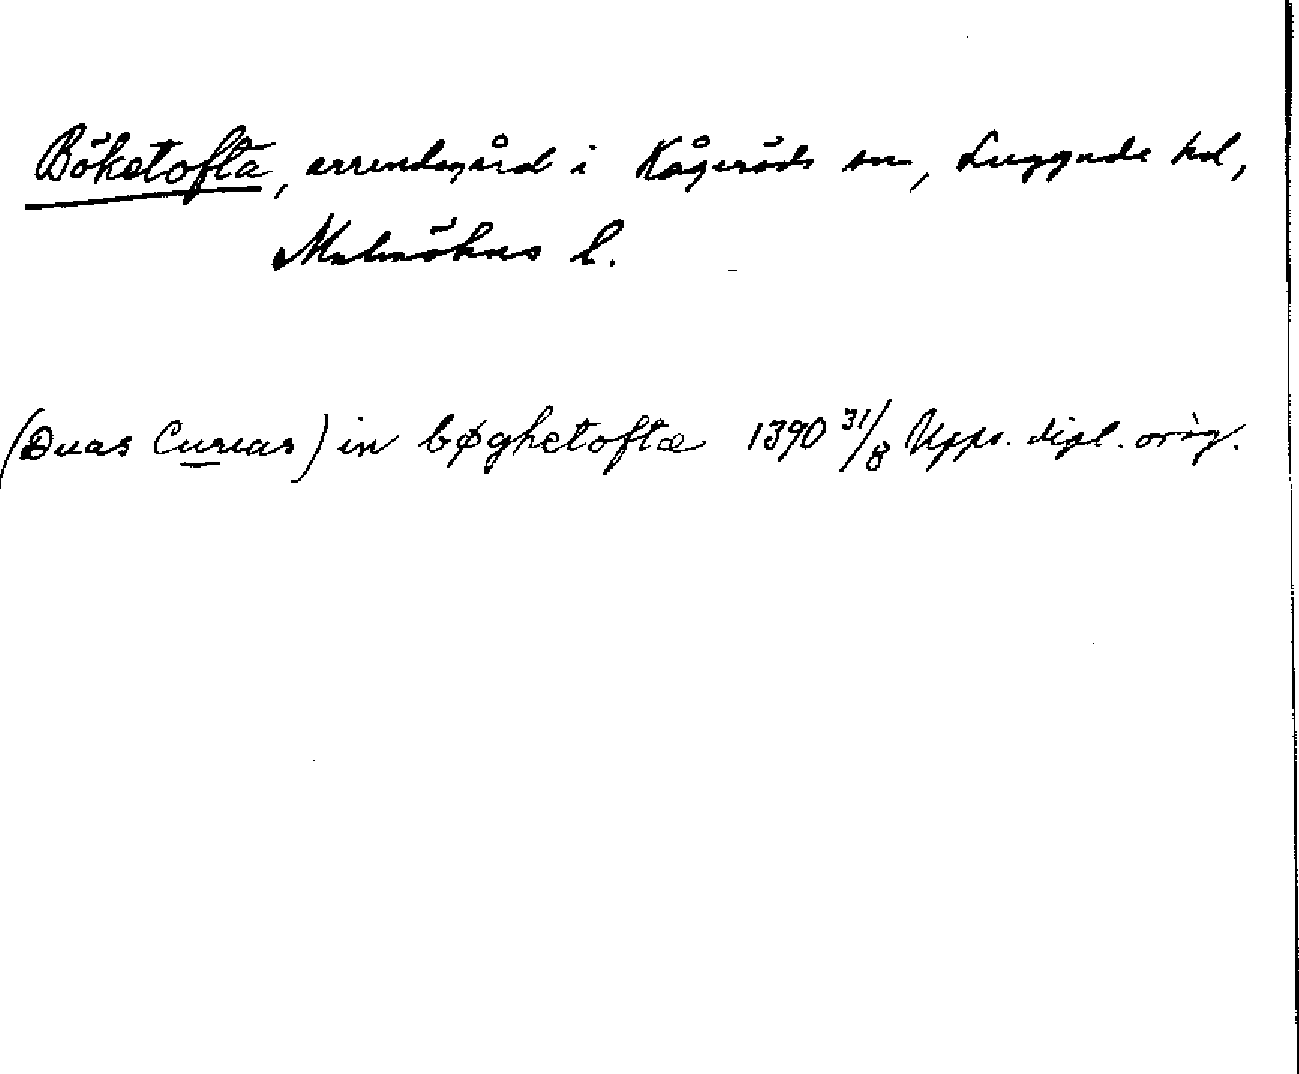 Böketofta, arrendegård i Kågeröds sn, Luggude hd,
Malmöhus l.
(Duas Curias) in bøghetoftæ 1390 31/8 Upps. dipl. orig.